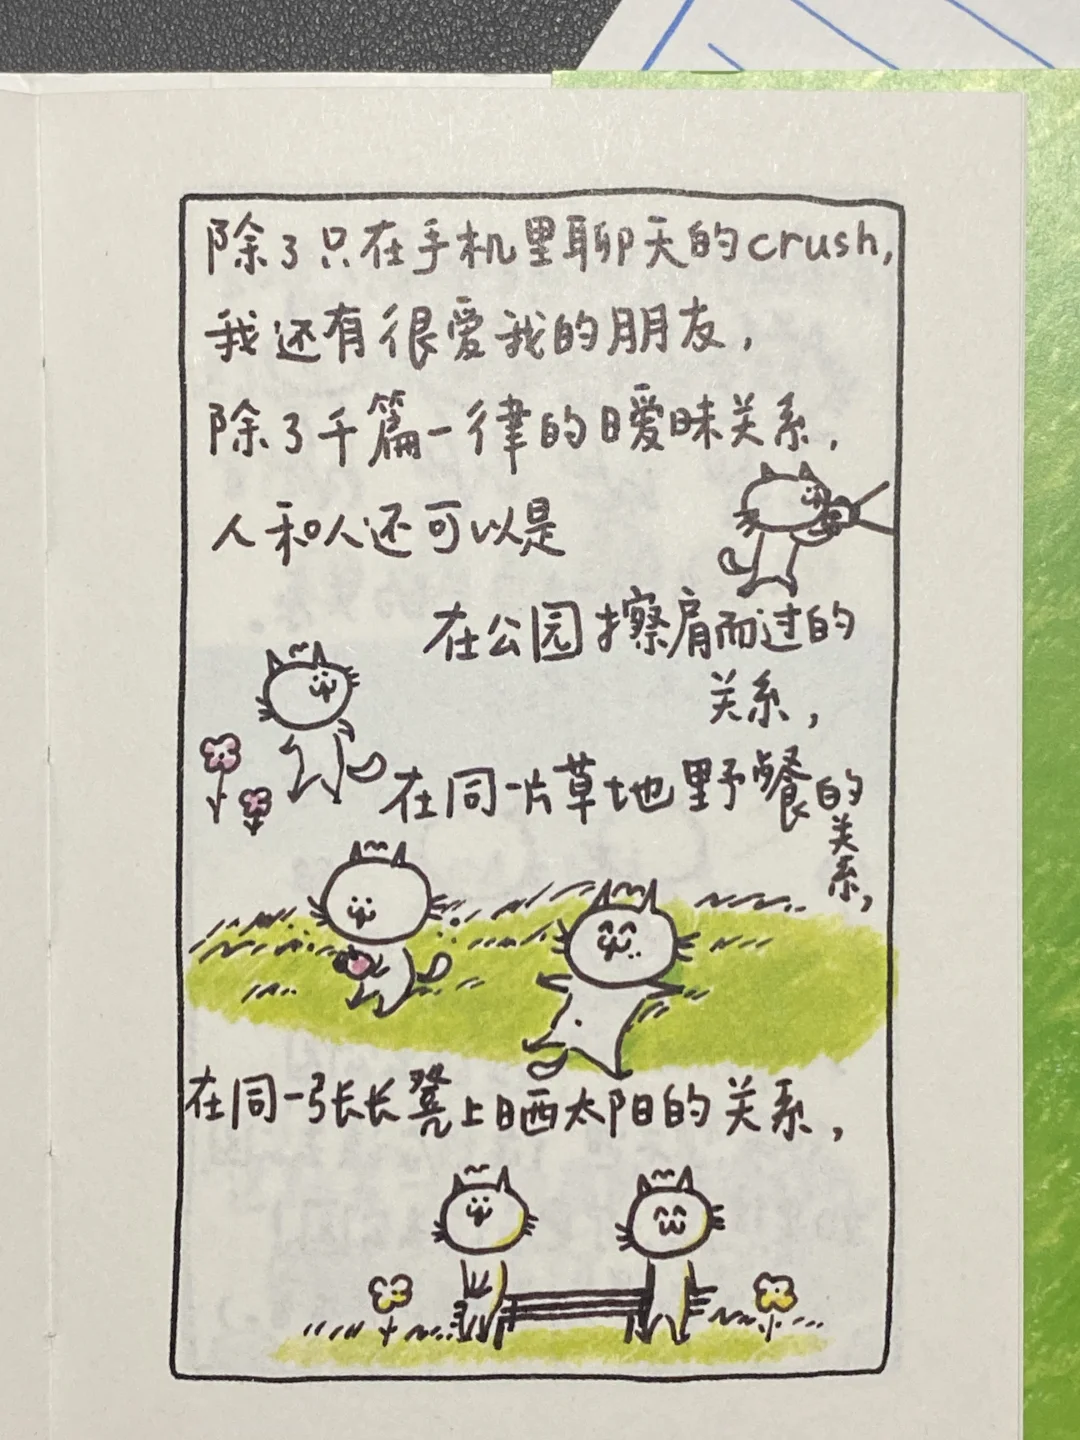 除了只在手机里聊天的crush,
我还有很爱我的朋友,
除了千篇一律的暧昧关系,
人和人还可以是
在公园擦肩而过的
关系,
在同一片草地野餐的
关系,
在同一张长凳上晒太阳的关系,